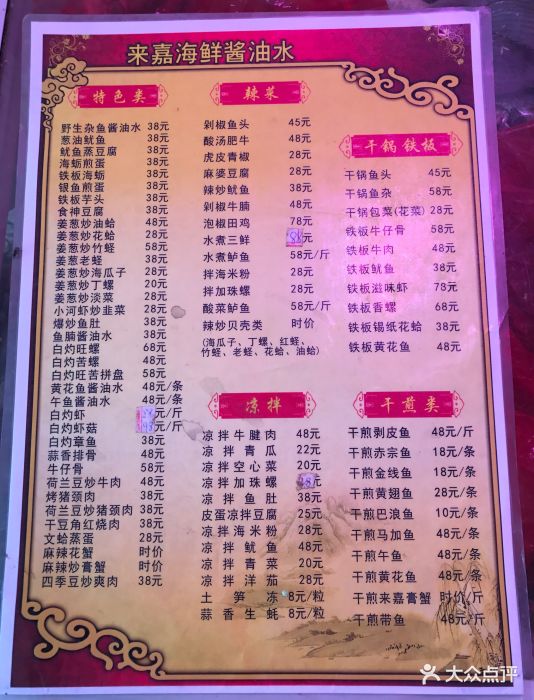 来嘉海鲜酱油水
特色类
野生杂鱼酱油水 38元
葱油鱿鱼 38元
鱿鱼蒸豆腐 38元
海蛎煎蛋 28元
铁板海蛎 28元
银鱼煎蛋 28元
铁板芋头 38元
食神豆腐 38元
姜葱炒油蛤 48元
姜葱炒花蛤 28元
姜葱炒竹蛏 58元
姜葱老蛏 38元
姜葱炒海瓜子 28元
姜葱炒丁螺 20元
姜葱炒淡菜 28元
小河虾炒韭菜 28元
爆炒鱼肚 38元
鱼腩酱油水 28元
白灼旺螺 68元
白灼苦螺 48元
白灼旺苦拼盘 58元
黄花鱼酱油水 48元/条
午鱼酱油水 48元/条
白灼虾 58元/斤
白灼虾菇 元/斤
白灼章鱼 38元
蒜香排骨 48元
牛仔骨 58元
荷兰豆炒牛肉 48元
烤猪颈肉 38元
荷兰豆炒猪颈肉 38元
干豆角红烧肉 38元
文蛤蒸蛋 28元
麻辣花蟹 时价
麻辣炒膏蟹 时价
四季豆炒爽肉 38元
辣菜
剁椒鱼头 45元
酸汤肥牛 48元
虎皮青椒 28元
麻婆豆腐 28元
辣炒鱿鱼 38元
剁椒牛腩 48元
泡椒田鸡 78元
水煮三鲜 58元
水煮鲈鱼 58元/斤
拌海米粉 28元
拌加珠螺 28元
酸菜鲈鱼 58元/斤
辣炒贝壳类 时价
(海瓜子、丁螺、红蛏、
竹蛏、老蛏、花蛤、油蛤)
干锅铁板
干锅鱼头 45元
干锅鱼杂 58元
干锅包菜(花菜) 28元
铁板牛仔骨 68元
铁板牛肉 48元
铁板鱿鱼 38元
铁板滋味虾 78元
铁板香螺 68元
铁板锡纸花蛤 38元
铁板黄花鱼 48元
凉拌
凉拌牛腱肉 48元
凉拌青瓜 22元
凉拌空心菜 20元
凉拌加珠螺 28元
凉拌鱼肚 38元
皮蛋凉拌豆腐 25元
凉拌海米粉 28元
凉拌鱿鱼 48元
凉拌青菜 20元
凉拌洋茄 28元
土笋冻 8元/粒
蒜香生蚝 8元/粒
干煎类
干煎剥皮鱼 48元/斤
干煎赤宗鱼 18元/条
干煎金线鱼 18元/条
干煎黄翅鱼 28元/条
干煎巴浪鱼 10元/条
干煎马加鱼 48元/条
干煎午鱼 48元/条
干煎黄花鱼 48元/条
干煎来嘉膏蟹 时价/斤
干煎带鱼 48元/条
大众点评